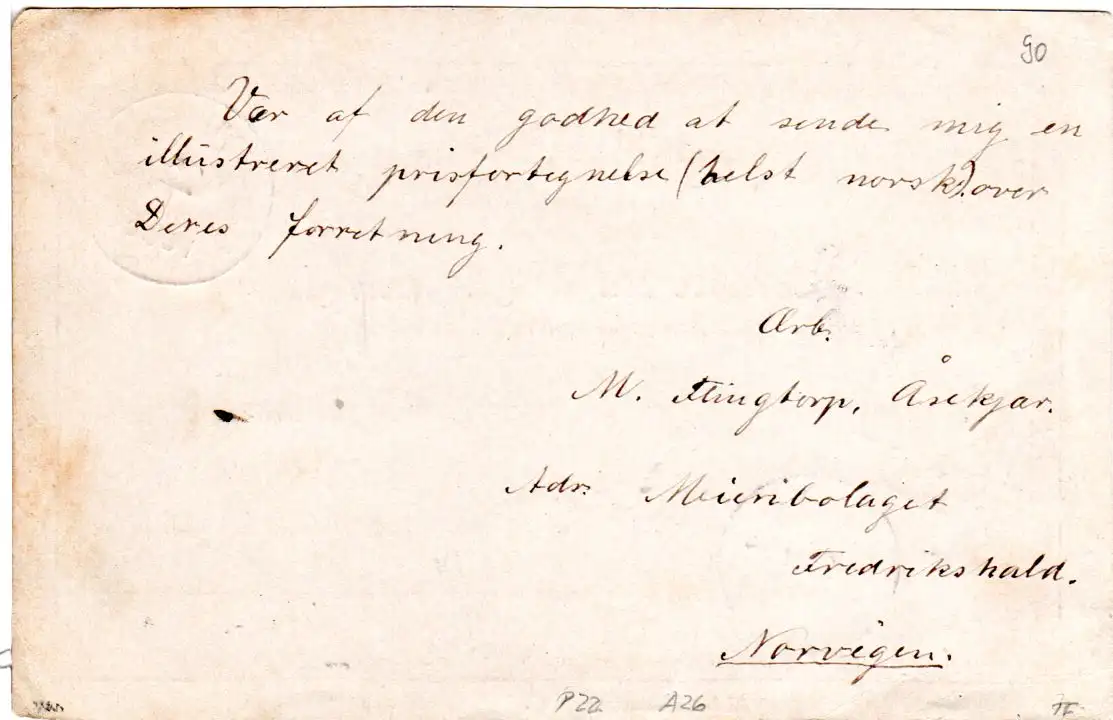 90
Vær af den godhed at sende mig en
illustreret prisfortegnelse (helst norsk) over
Deres forretning.
Ærb.
M. Flingtorp, Åsekjær.
Adr. Meieribolaget
Fredrikshald.
Norvegen.
P22 A26